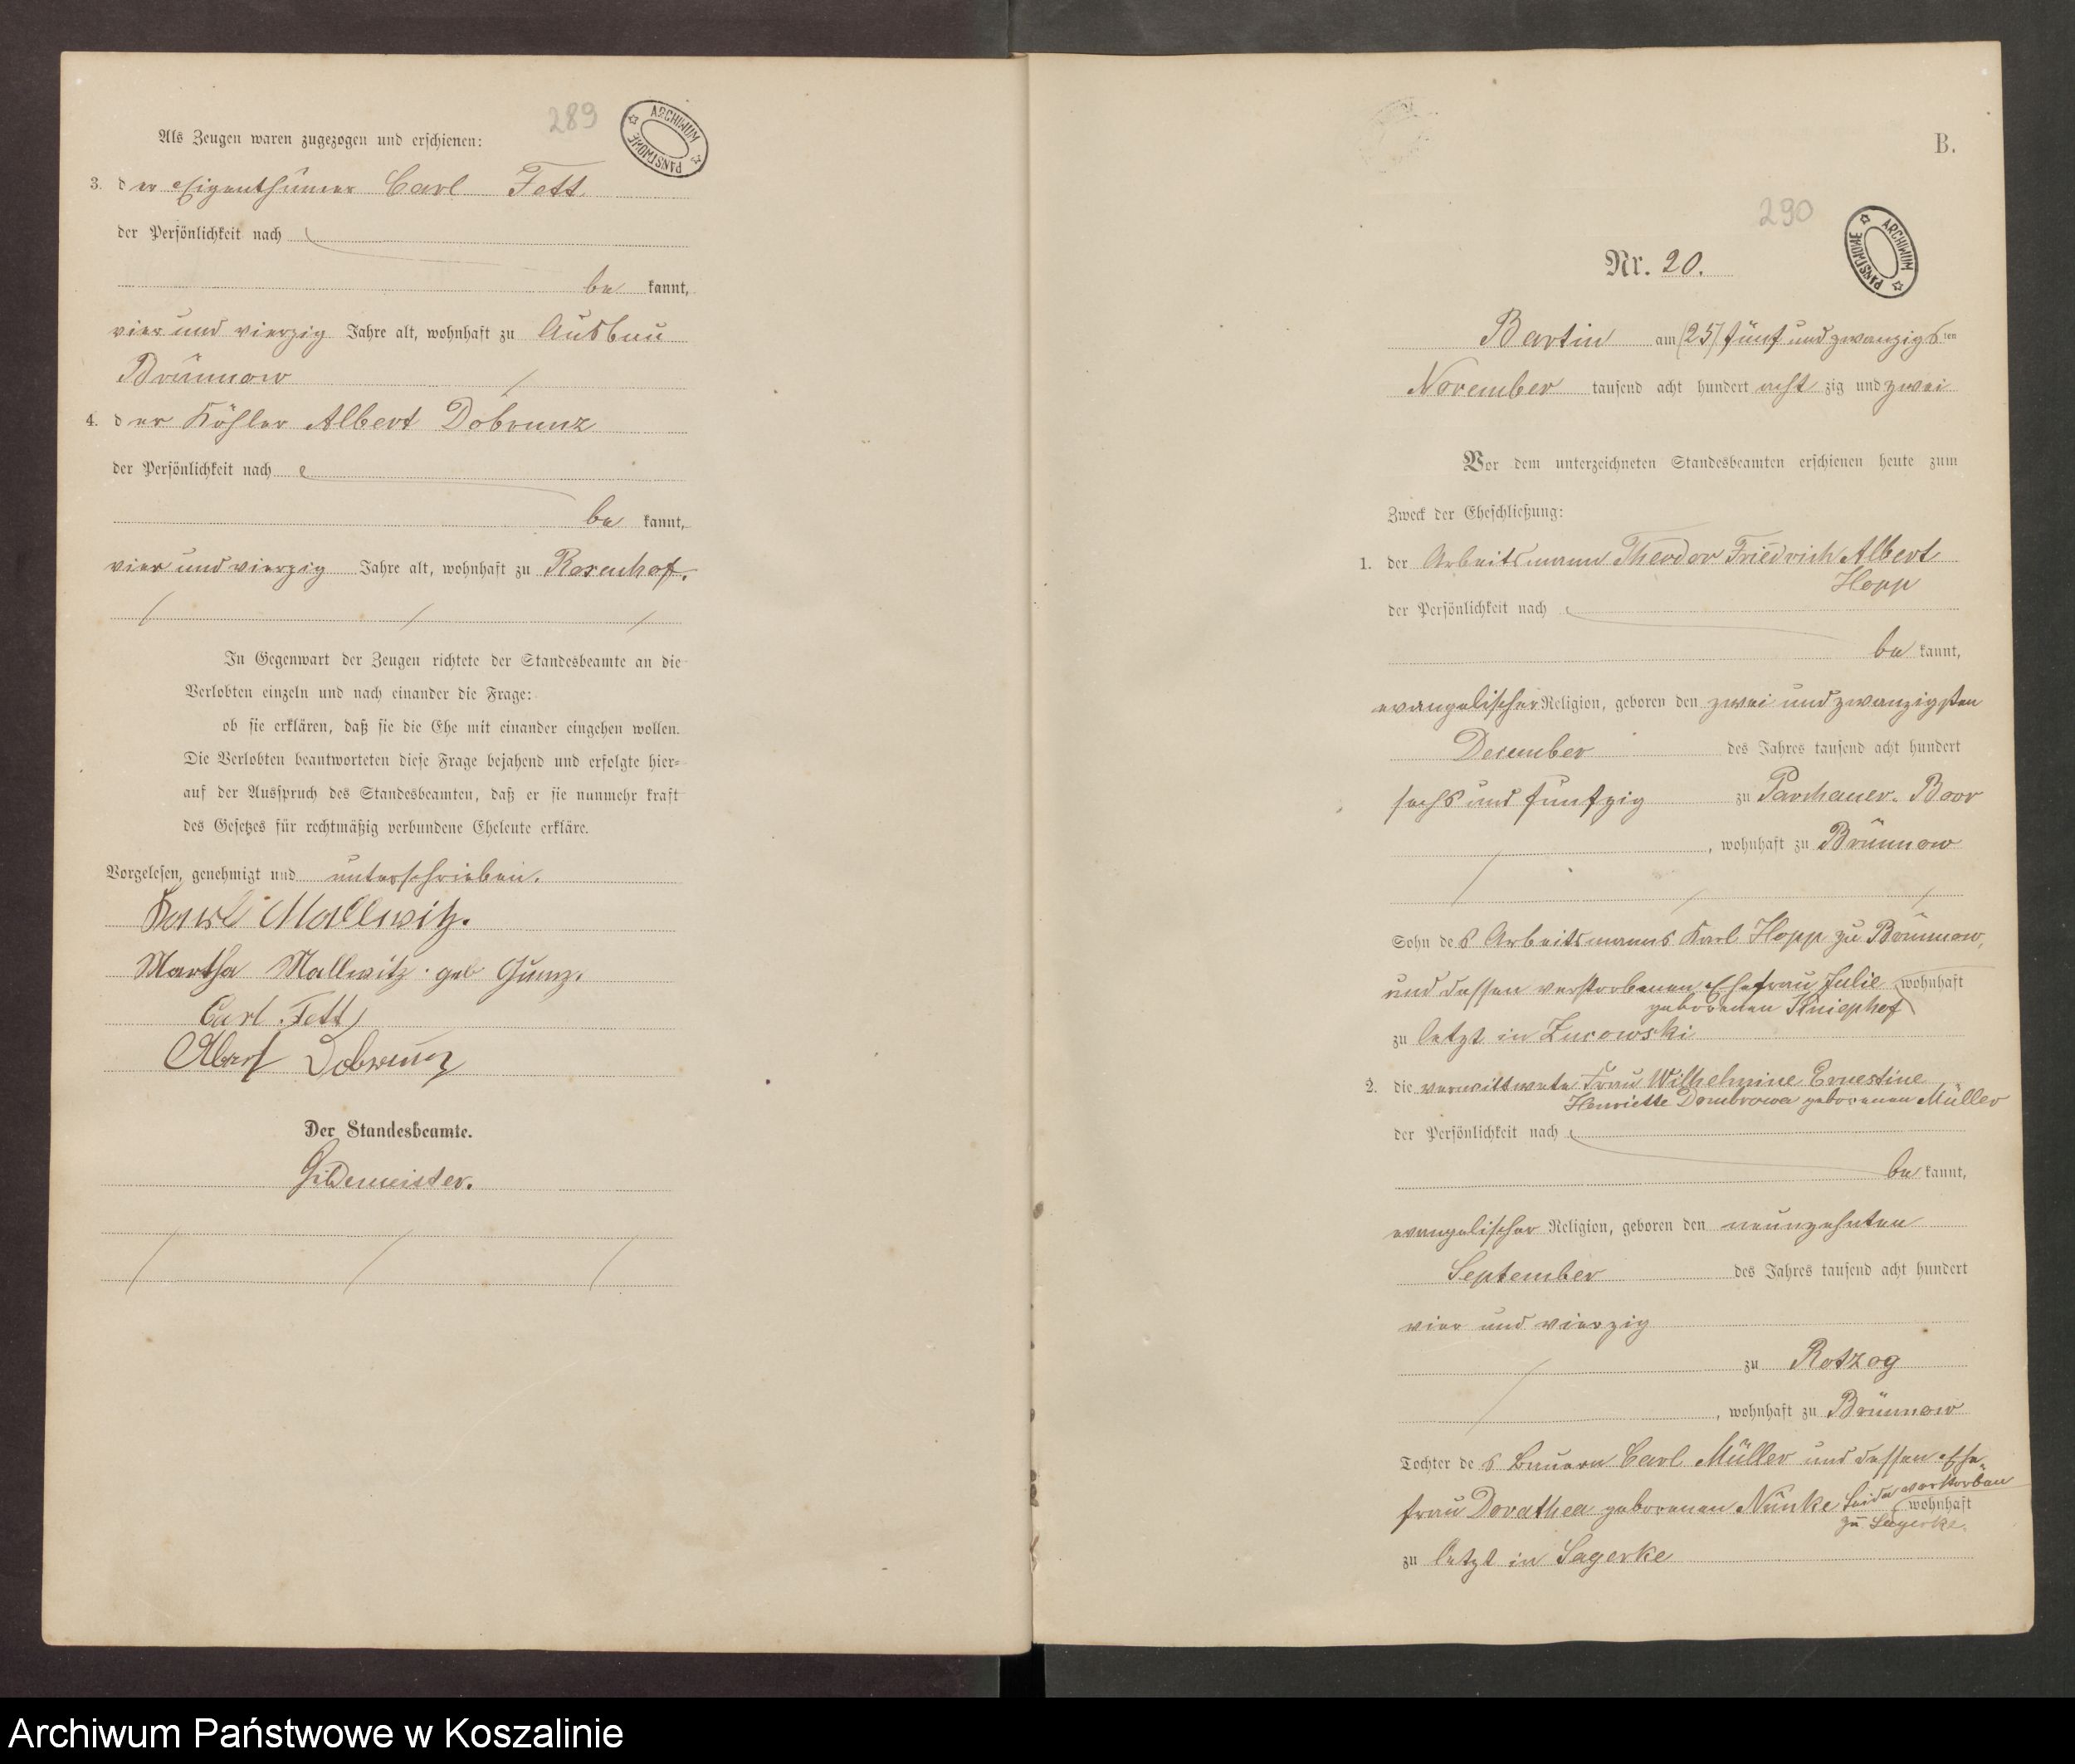 289
ARCHIWUM PAŃSTWOWE
Als Zeugen waren zugezogen und erschienen:
3. der Eigenthümer Carl Fett
der Persönlichkeit nach
be kannt,
vier und vierzig Jahre alt, wohnhaft zu Ausbau
Brünnow
4. der Köhler Albert Dobrunz
der Persönlichkeit nach
be kannt,
vier und vierzig Jahre alt, wohnhaft zu Rosenhof.
In Gegenwart der Zeugen richtete der Standesbeamte an die
Verlobten einzeln und nach einander die Frage:
ob sie erklären, daß sie die Ehe mit einander eingehen wollen.
Die Verlobten beantworteten diese Frage bejahend und erfolgte hier-
auf der Ausspruch des Standesbeamten, daß er sie nunmehr kraft
des Gesetzes für rechtmäßig verbundene Eheleute erkläre.
Vorgelesen, genehmigt und unterschrieben.
Karl Mallwitz.
Martha Mallwitz geb Gumz.
Carl Fett
Albert Dobrunz
Der Standesbeamte.
Gildemeister.
B.
290
ARCHIWUM PAŃSTWOWE
Nr. 20.
Bartin am (25) fünf und zwanzigsten
November tausend acht hundert acht zig und zwei
Vor dem unterzeichneten Standesbeamten erschienen heute zum
Zweck der Eheschließung:
1. der Arbeitsmann Theodor Friedrich Albert
Hopp
der Persönlichkeit nach
be kannt,
evangelischer Religion, geboren den zwei und zwanzigsten
December des Jahres tausend acht hundert
sechs und fünfzig zu Parchauer-Boor
, wohnhaft zu Brünnow
Sohn des Arbeitsmanns Karl Hopp zu Brünnow,
und dessen verstorbenen Ehefrau Julie wohnhaft
geborenen Kniephof
zu letzt in Zucowski
2. die verwittwete Frau Wilhelmine Ernestine
Henriette Dombrowa geborenen Müller
der Persönlichkeit nach
be kannt,
evangelischer Religion, geboren den neunzehnten
September des Jahres tausend acht hundert
vier und vierzig
zu Rotzog
, wohnhaft zu Brünnow
Tochter des Bauern Carl Müller und dessen Ehe-
frau Dorathea geborenen Nünke beide verstorben
wohnhaft
zu Sagerke.
zu letzt in Sagerke
Archiwum Państwowe w Koszalinie